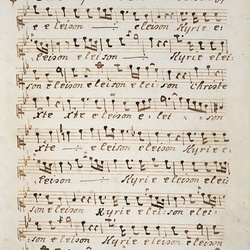 e eleison e eleison Kyrie e:
eleison eleison Kyrie elei:
son eleison eleison eleison Christe
xte xte eleison elei son
xte eleison Kyrie elei
eleison Kyrie elei:
son eleison Kyrie eleison elei:
son eleison Kyrie eleison elei